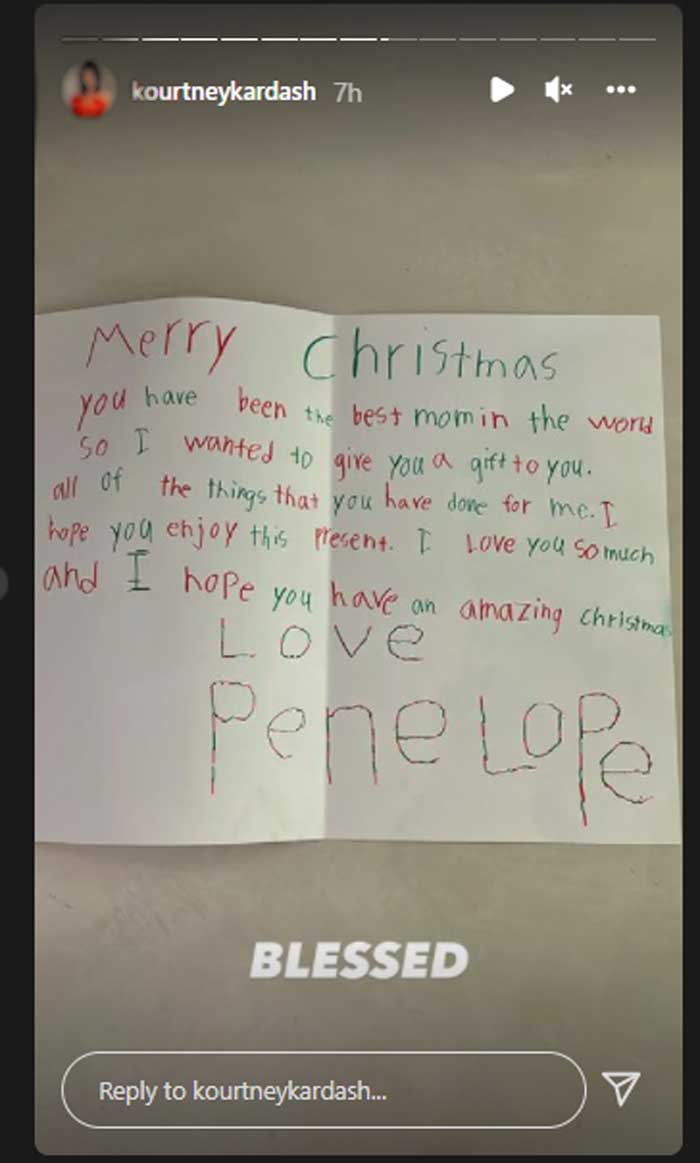 kourtneykardash 7h
Merry Christmas
you have been the best mom in the world
so I wanted to give you a gift to you.
all of the things that you have done for me. I
hope you enjoy this present. I Love you so much
and I hope you have an amazing christmas
Love
Penelope
BLESSED
Reply to kourtneykardash...